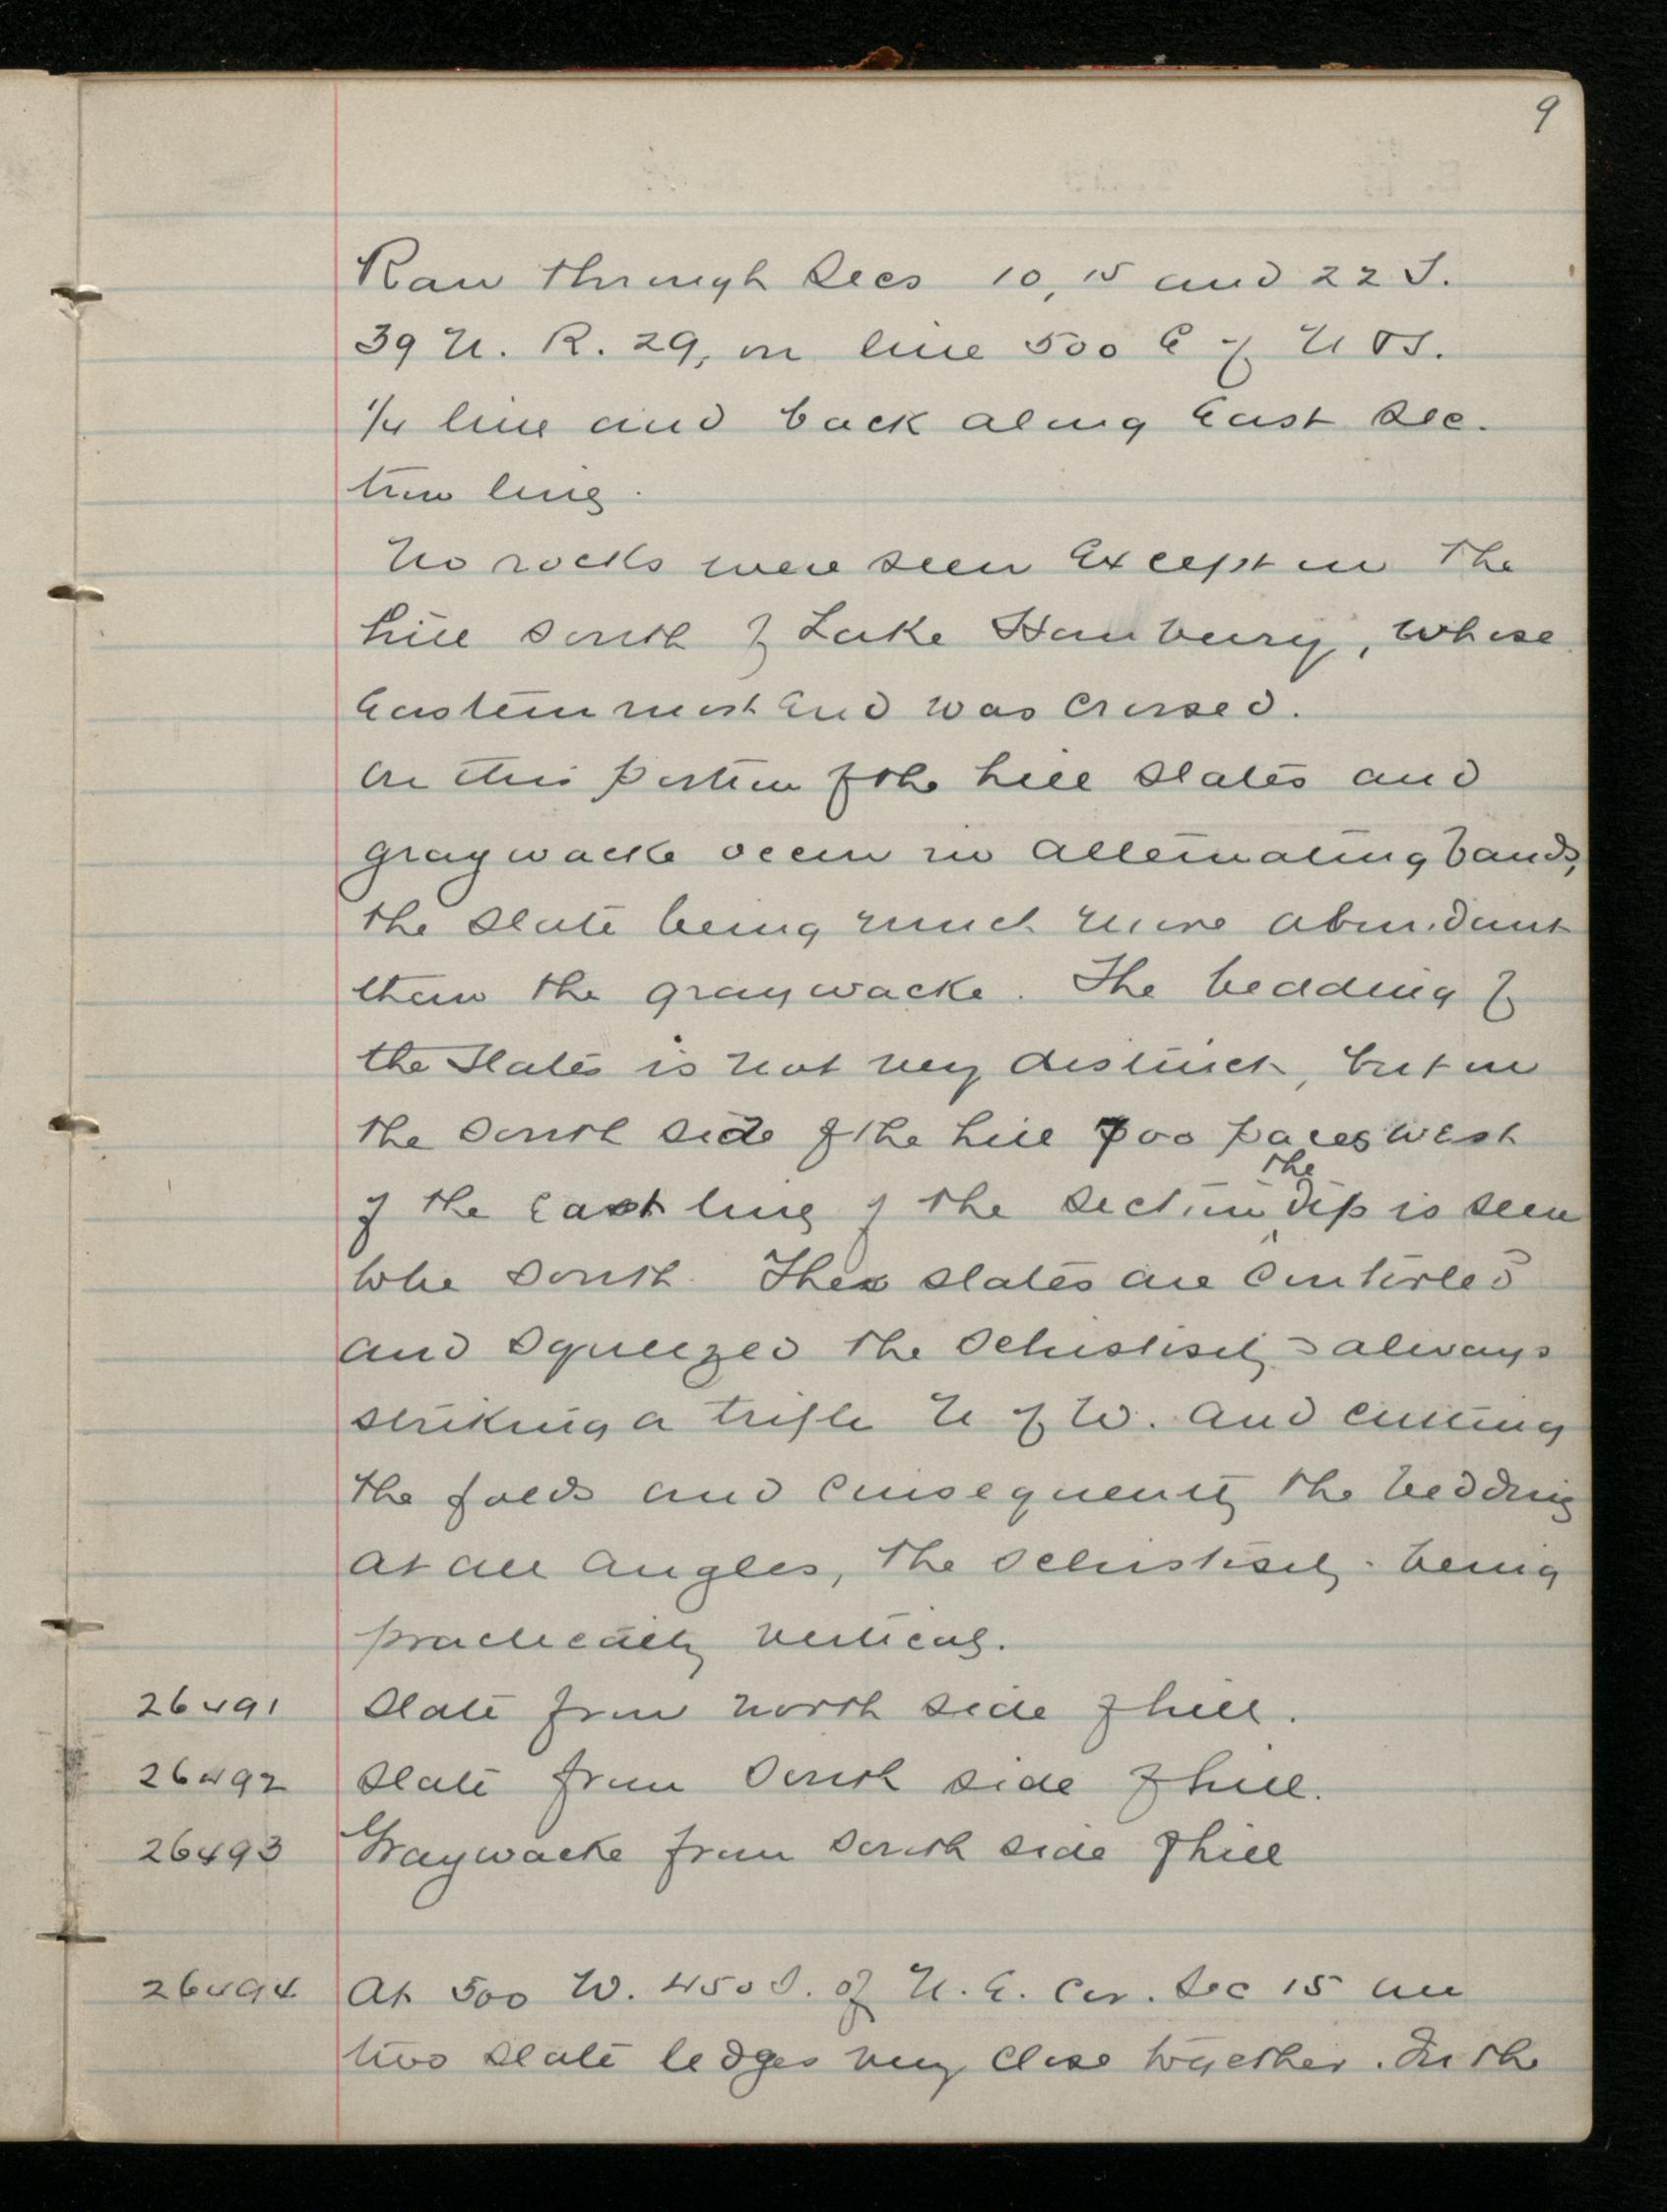 9
Ran through Secs 10, 15 and 22 T.
39 N. R. 29, on line 500 E of N & S.
1/4 line and back along East Sec-
tion line.
No rocks were seen Except on the
hill south of Lake Hanbury, whose
Eastern most End was crossed.
On this portion of the hill slates and
graywacke occur in alternating bands,
the slate being much more abundant
than the graywacke. The bedding of
the slates is not very distinct, but on
the south side of the hill 700 paces west
of the East line of the section the dip is seen
to be south. These slates are contorted
and squeezed the schistosity always
striking a trifle N of W. and cutting
the folds and consequently the bedding
at all angles, the schistosity being
practically vertical.
26491 Slate from north side of hill.
26492 Slate from South side of hill.
26493 Graywacke from South side of hill
26494 At 500 W. 450 S. of N. E. Cor. Sec 15 are
two slate ledges very close together. In the